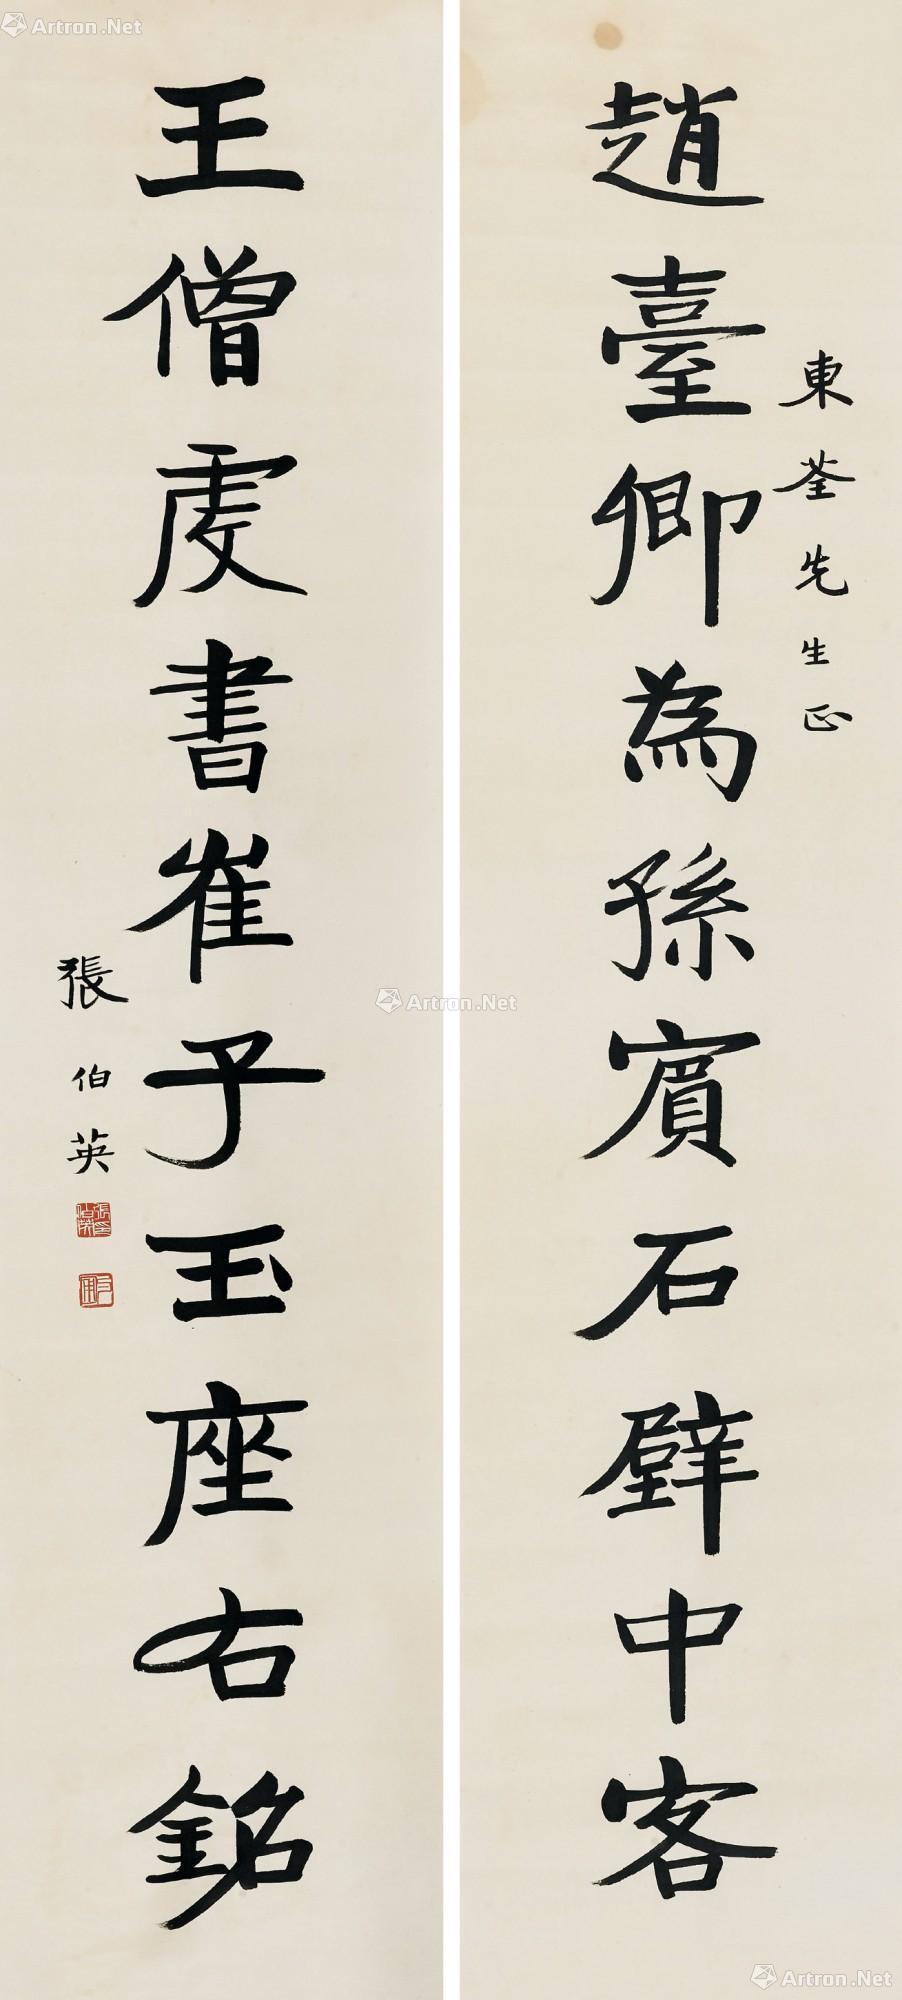 東荃先生正
趙臺卿為孫賓石壁中客
王僧虔書崔子玉座右銘
張伯英
Artron.Net
Artron.Net
Artron.Net